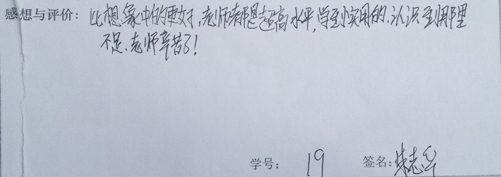 感想与评价：比想象中的要好，老师都是超高水平，学到实用的，认识到哪里
不足，老师辛苦了！
学号：19 签名：朱志华